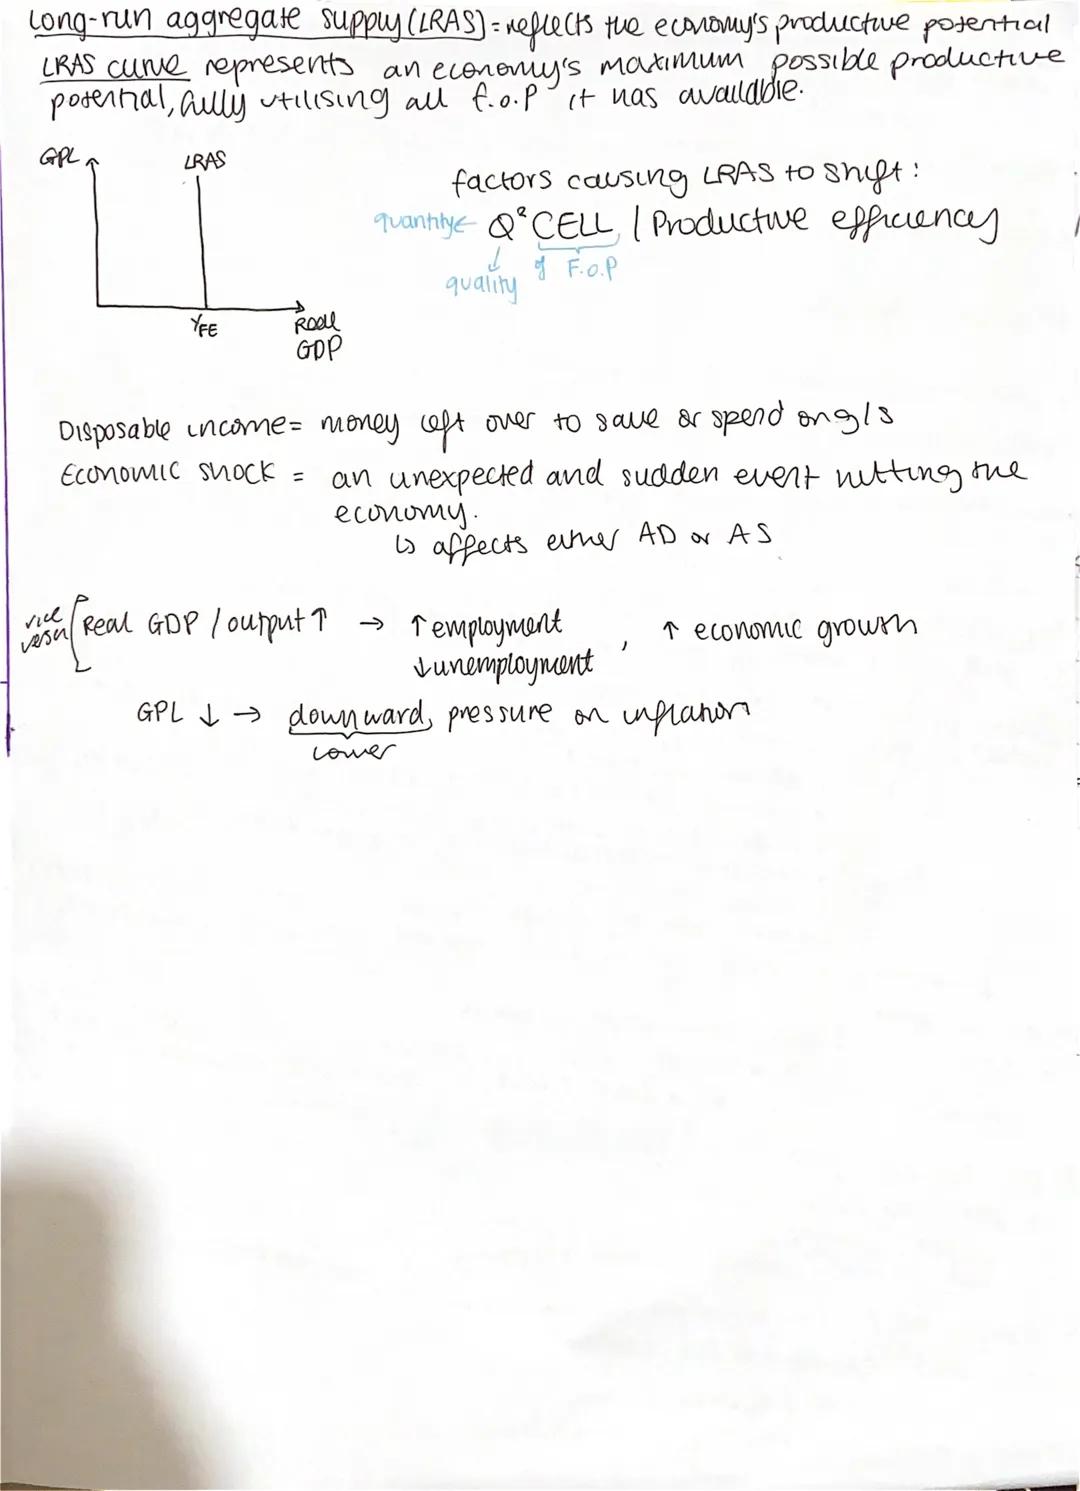 Long-run aggregate supply (LRAS) = reflects the economy's productive potential
LRAS curve represents an economy's maximum possible productive
potential, fully utilising all f.o.p it has available.
GPL
LRAS
YFE
Real
GDP
factors causing LRAS to shift:
quantity ← Q²CELL / Productive efficiency
↓
quality of F.O.P
Disposable income = money left over to save or spend on g/s
Economic shock = an unexpected and sudden event hitting the
economy.
↳ affects either AD or AS
vice
versa
Real GDP / output ↑ → ↑ employment , ↑ economic growth
↓ unemployment
GPL ↓ → downward pressure on inflation
lower